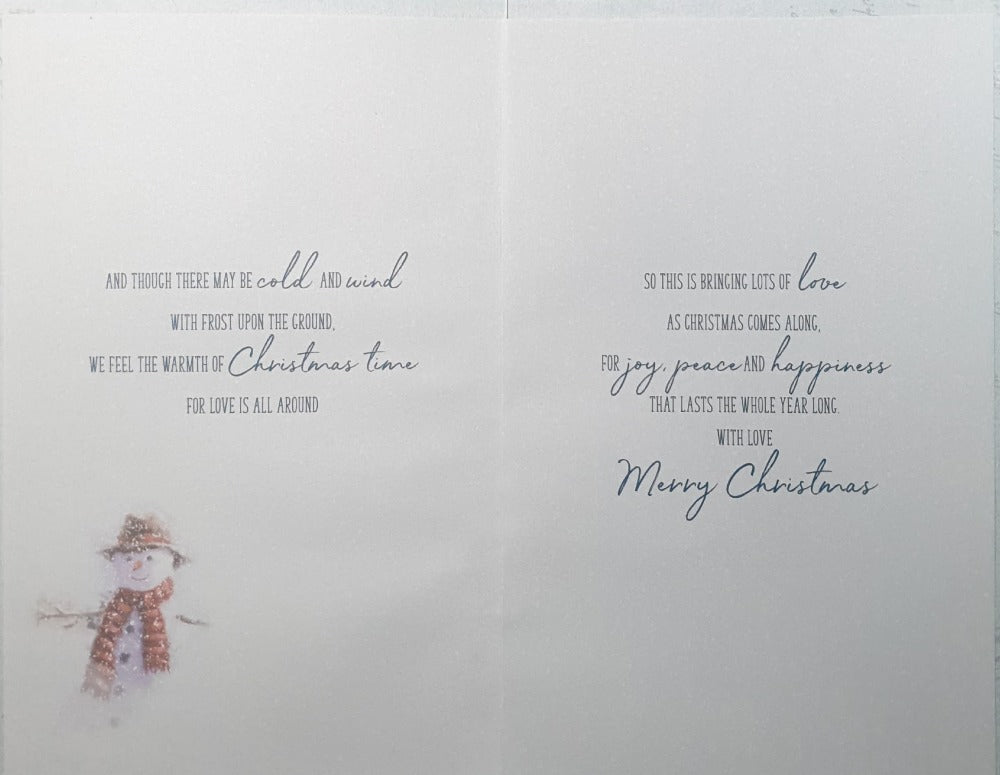 AND THOUGH THERE MAY BE cold AND wind
WITH FROST UPON THE GROUND,
WE FEEL THE WARMTH OF Christmas time
FOR LOVE IS ALL AROUND
SO THIS IS BRINGING LOTS OF love
AS CHRISTMAS COMES ALONG,
FOR joy, peace AND happiness
THAT LASTS THE WHOLE YEAR LONG.
WITH LOVE
Merry Christmas